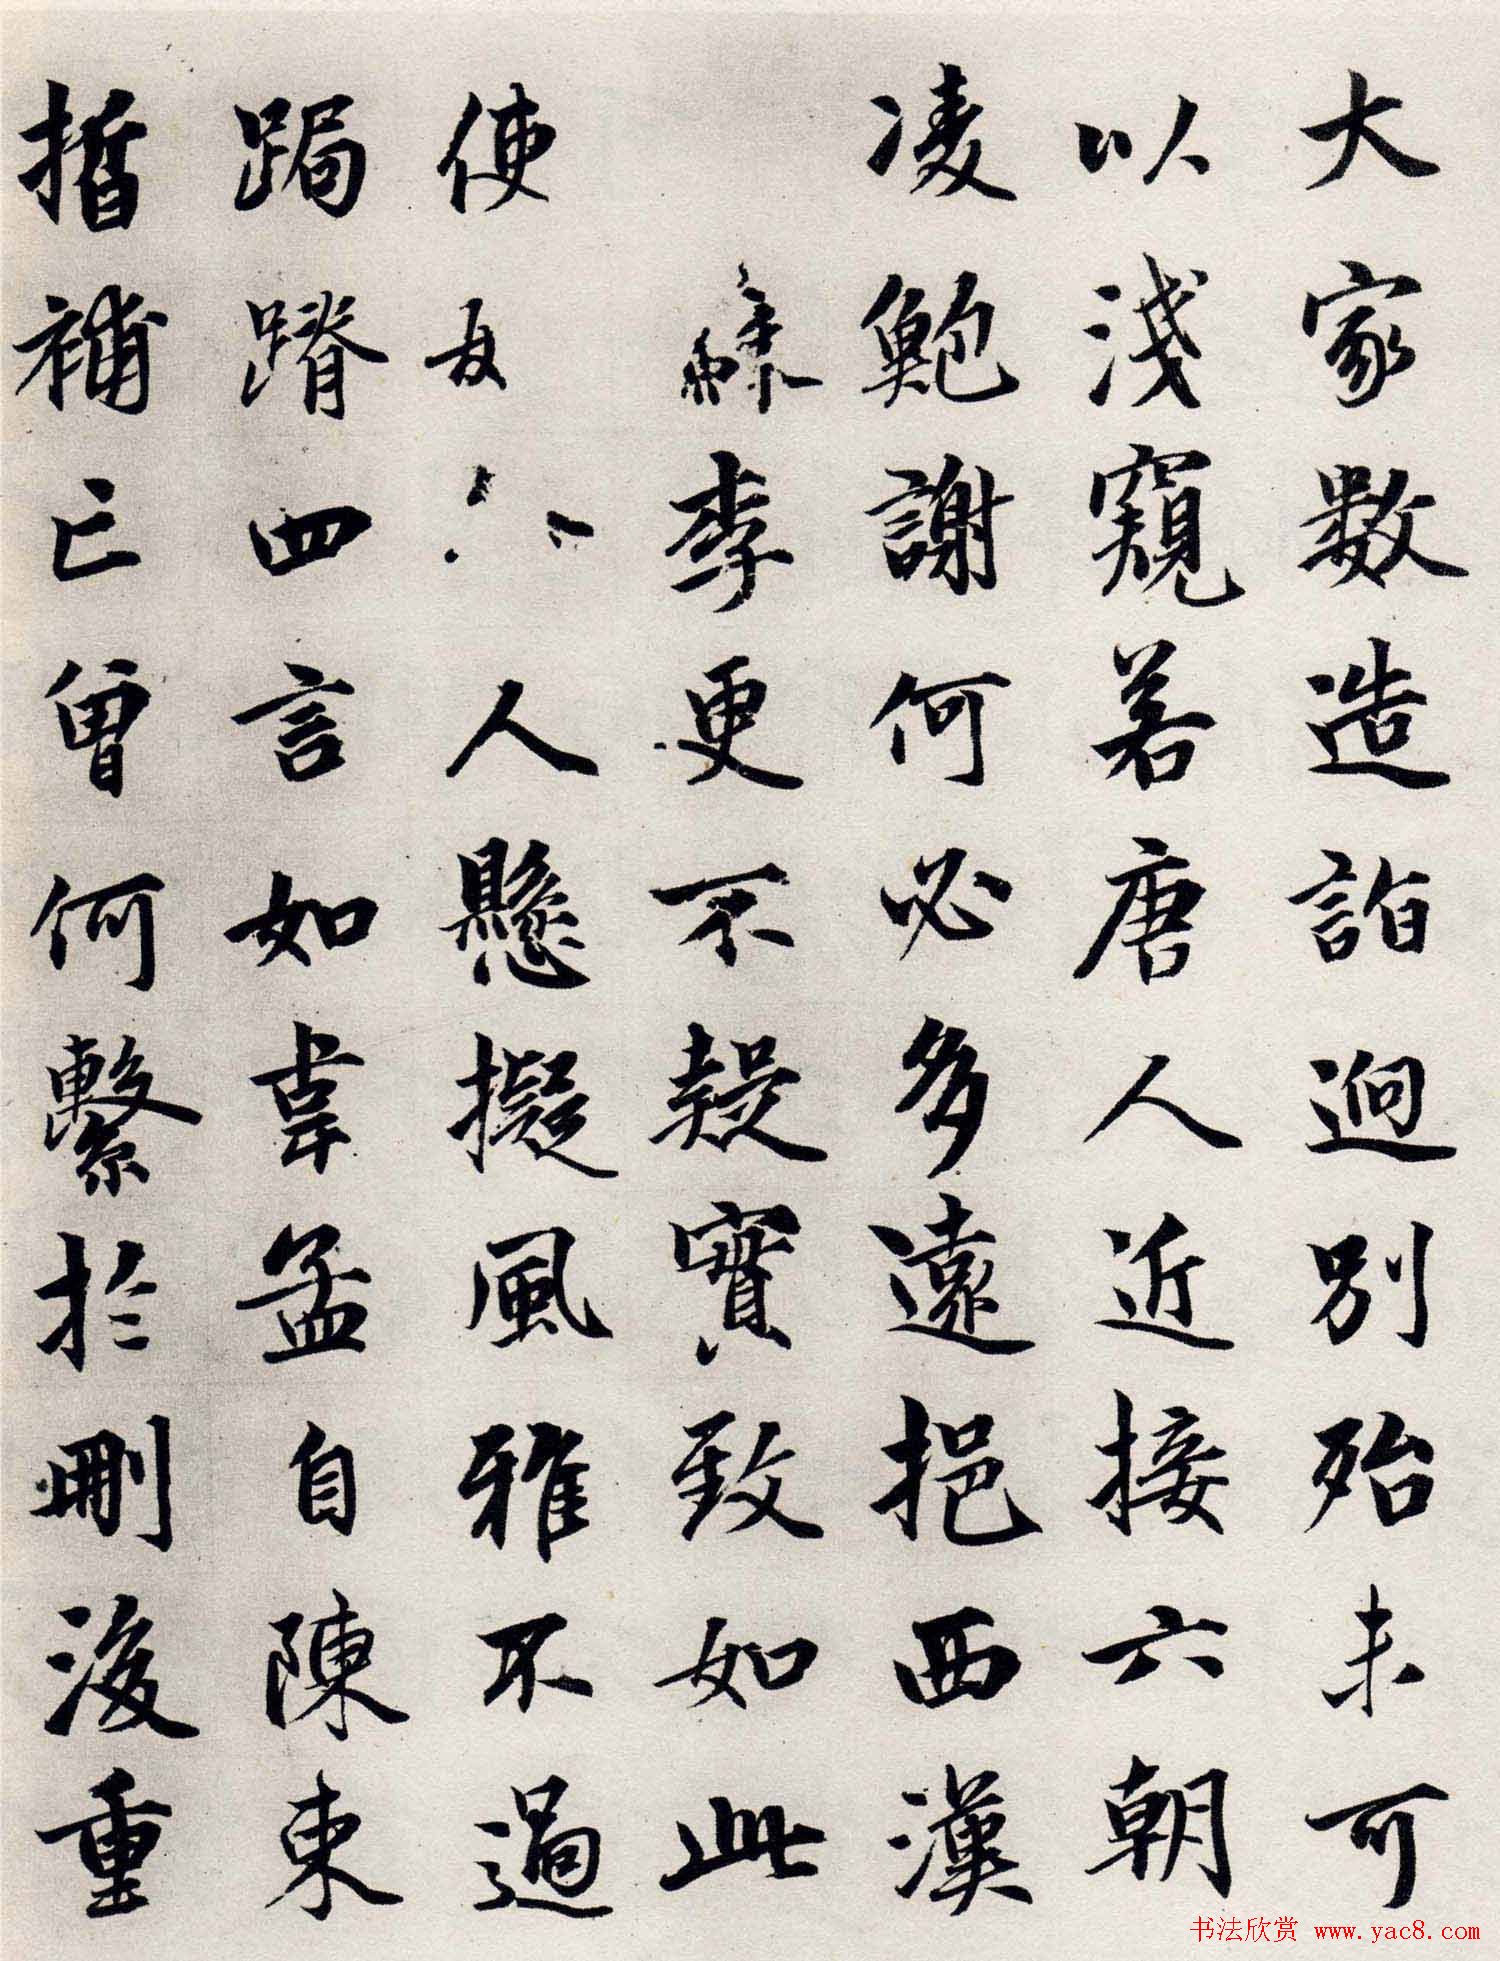 大家數造詣迥別殆未可
以淺窺若唐人近接六朝
凌鮑謝何必多遠挹西漢
李更不疑實致如此
使 人懸擬風雅不過
跼蹐四言如韋孟自陳束
晳補亡曾何繫於刪後重
书法欣赏 www.yac8.com